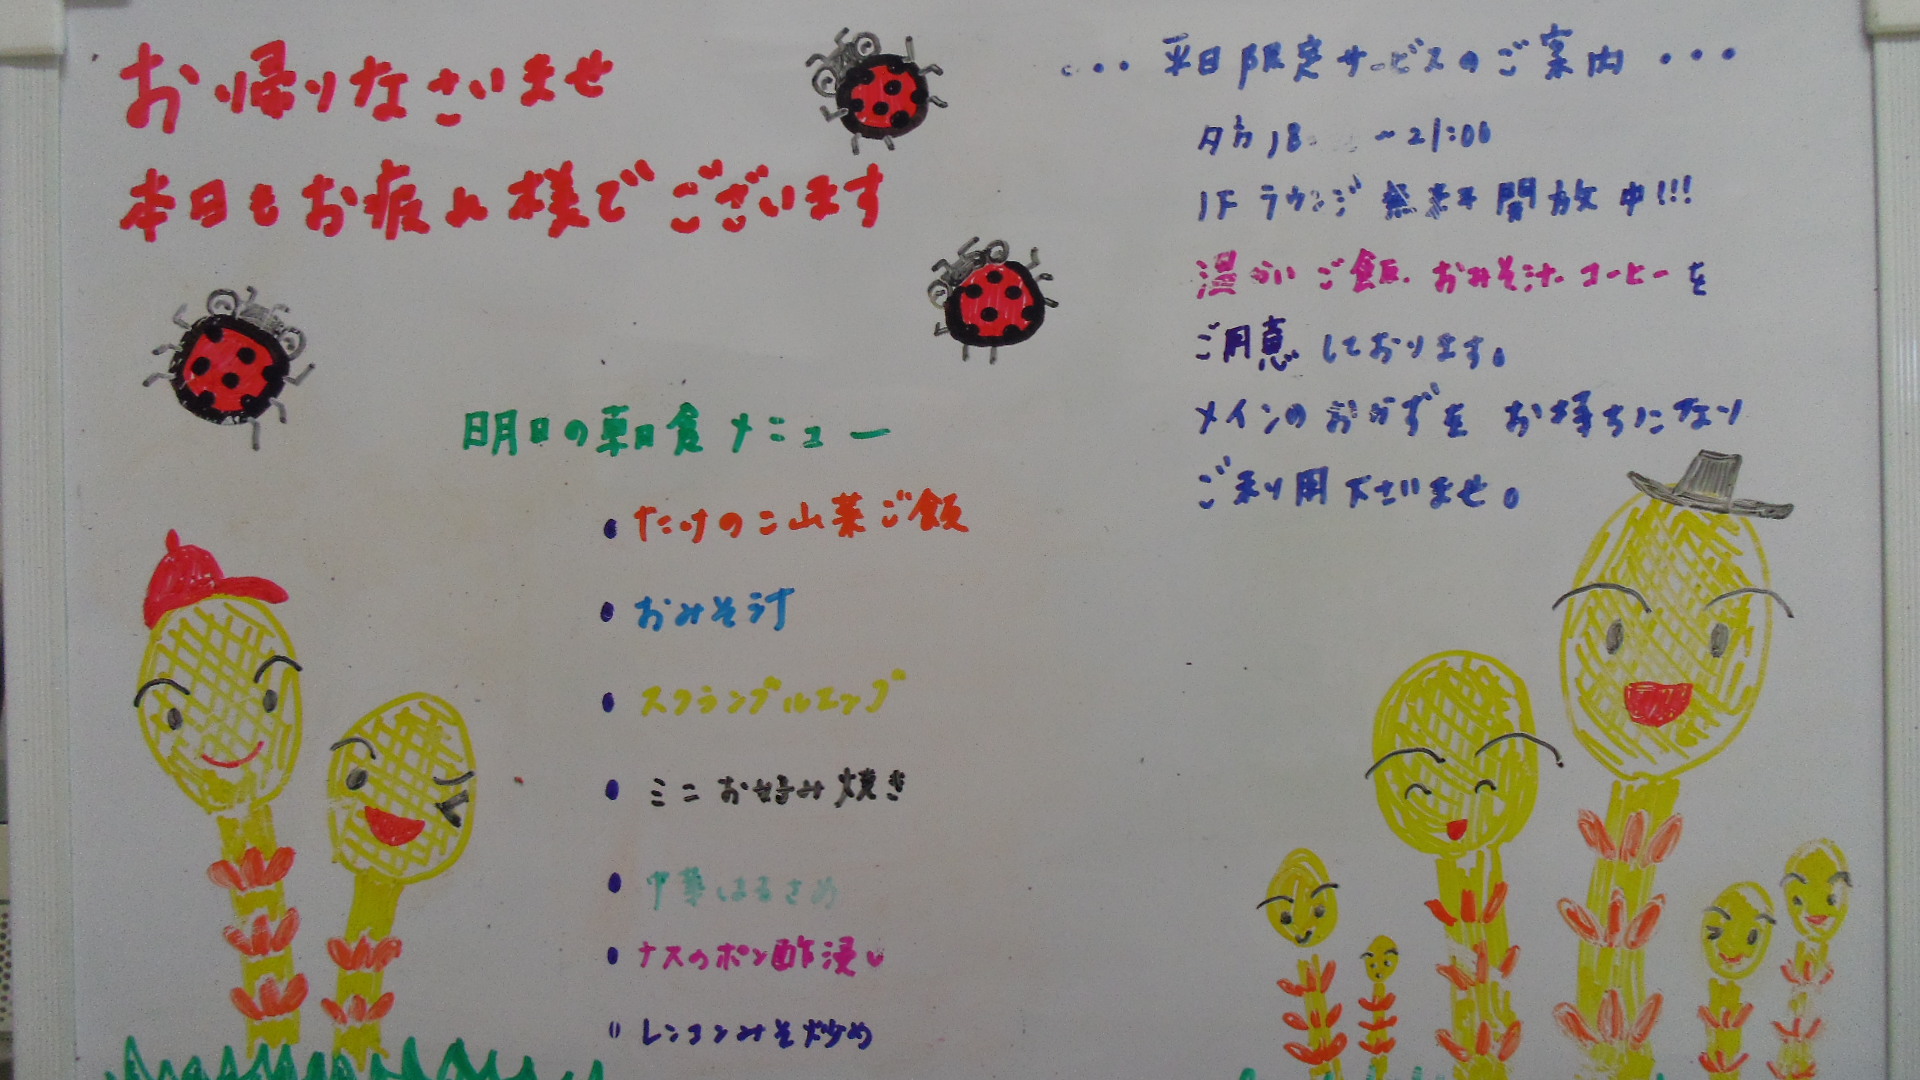 お帰りなさいませ
本日もお疲れ様でございます
明日の朝食メニュー
• たけのこ山菜ご飯
• おみそ汁
• スクランブルエッグ
• ミニお好み焼き
• 中華はるさめ
• ナスのポン酢浸し
• レンコンみそ炒め
・・・平日限定サービスのご案内・・・
夕方18 ～21:00
1Fラウンジ無料開放中!!!
温かいご飯、おみそ汁、コーヒーを
ご用意しております。
メインのおかずをお持ちになり
ご利用下さいませ。